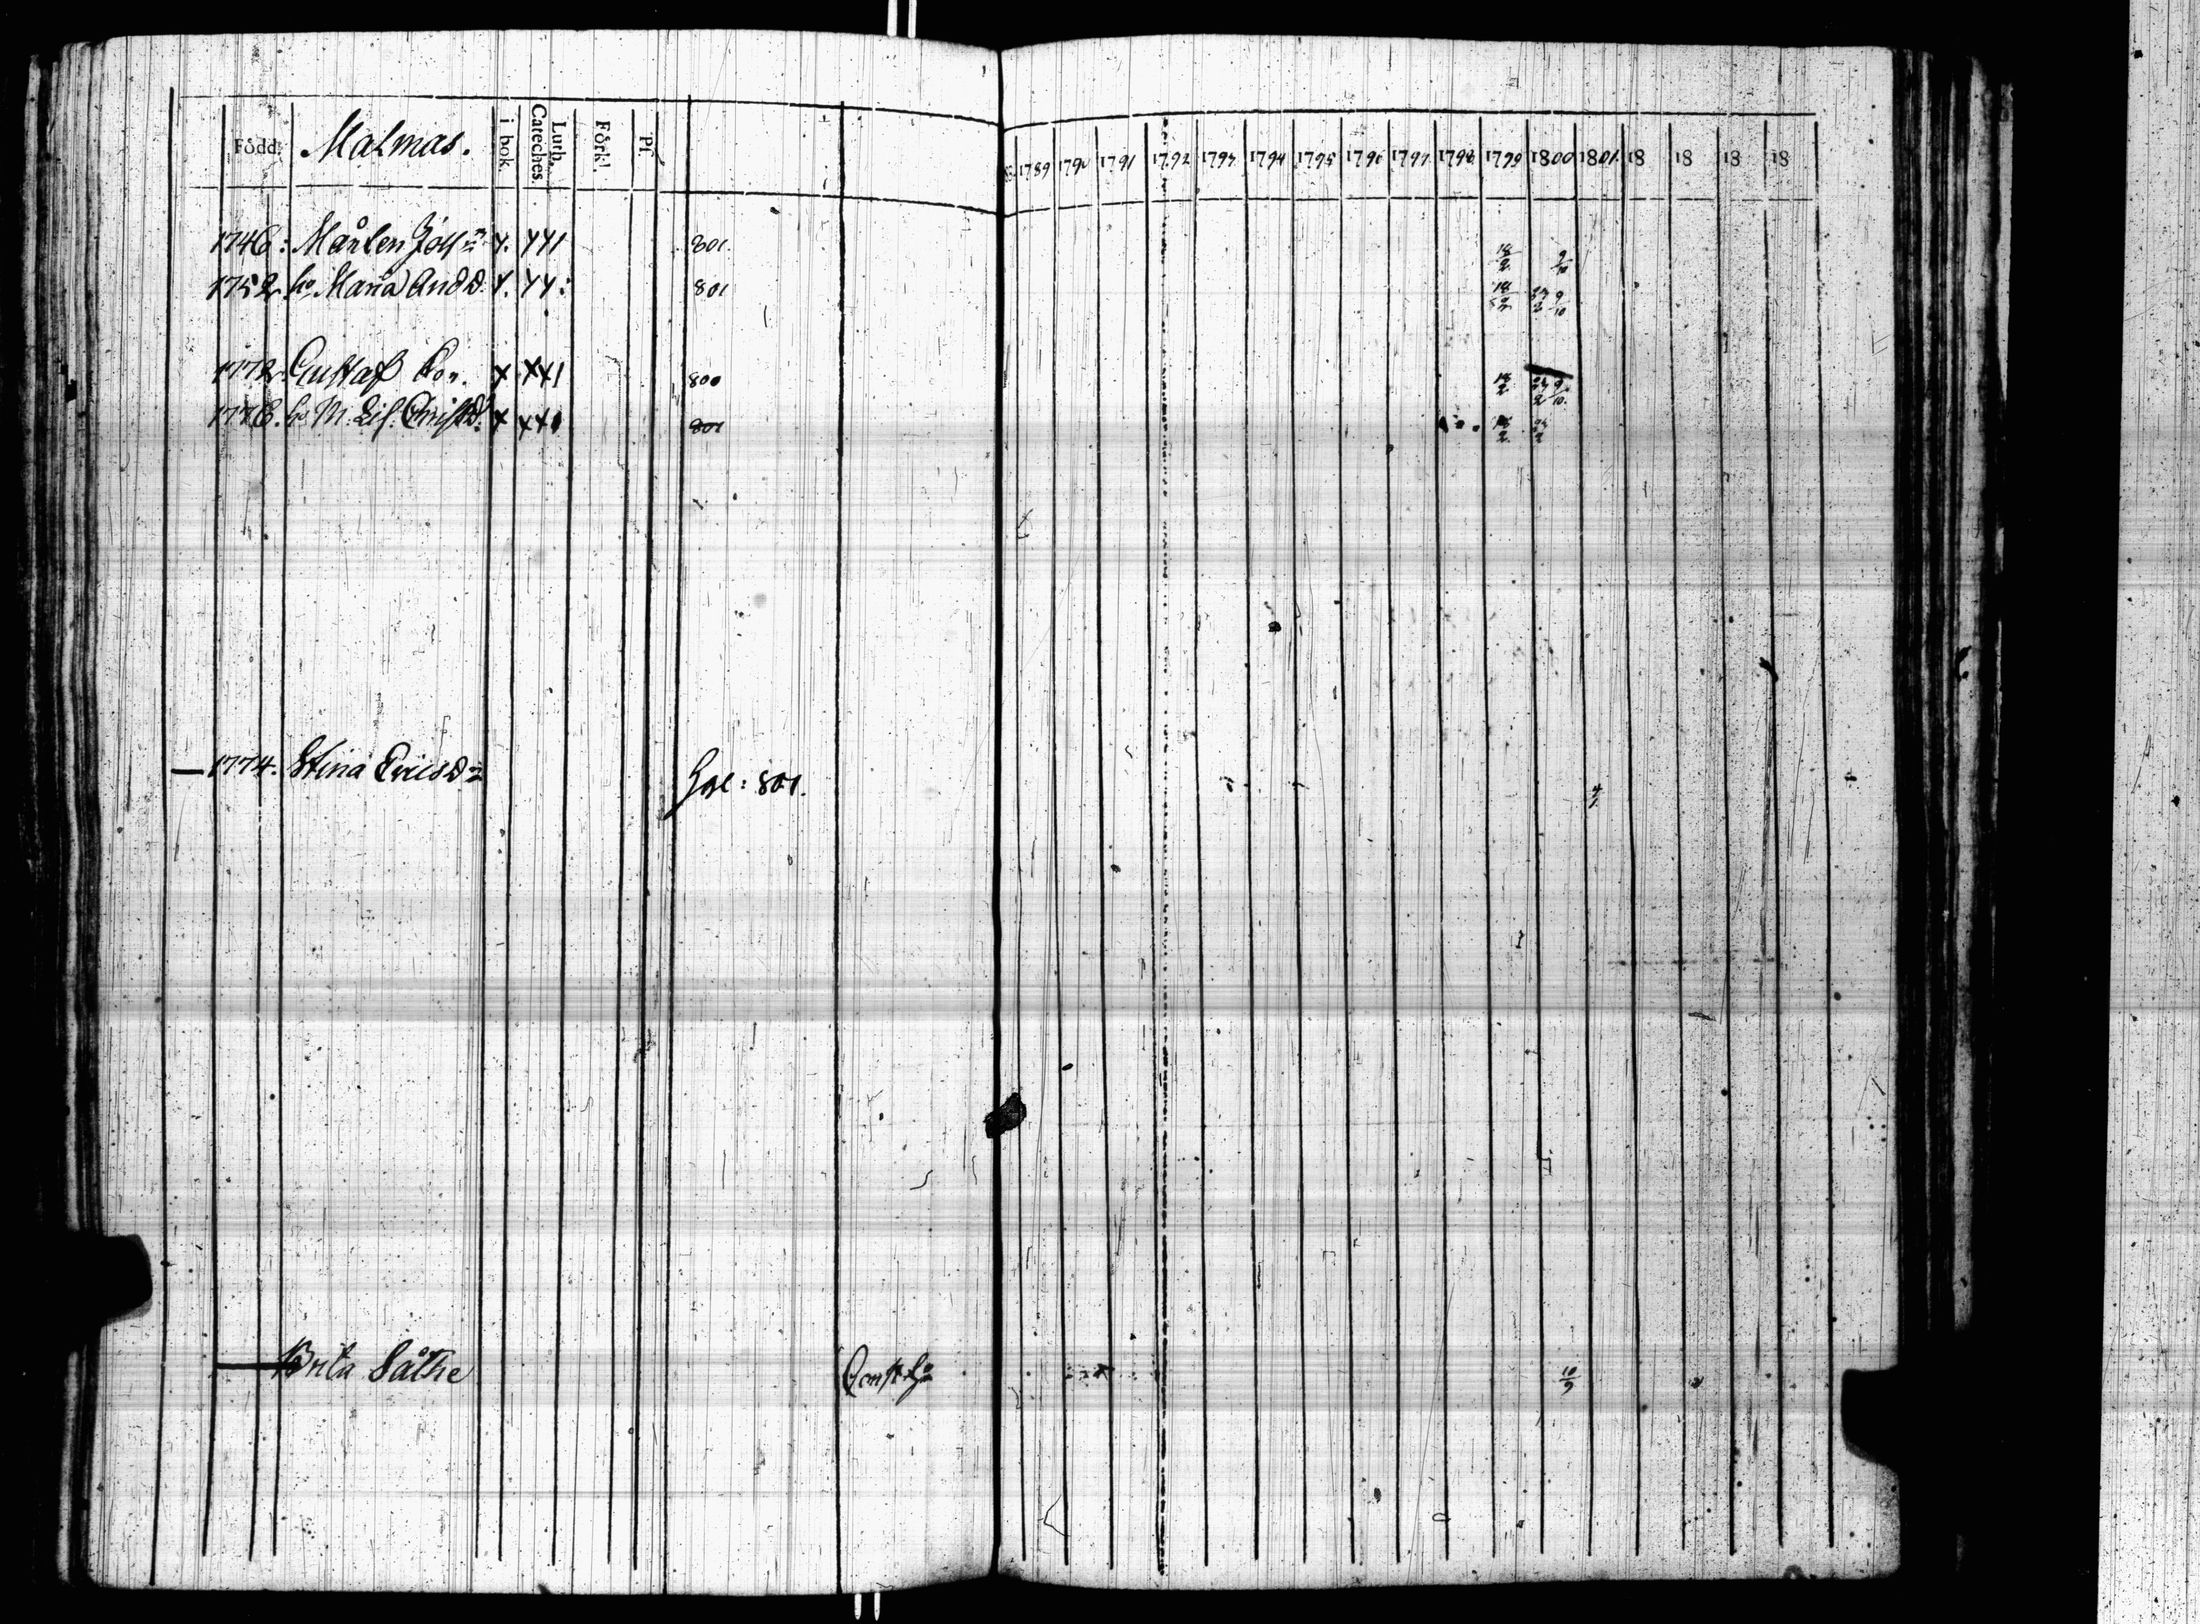 Född. Malmas. i bok. Luth. Cateches. Förkl. Pf. 1789 1790 1791 1792 1793 1794 1795 1796 1797 1798 1799 1800 1801. 18 18 18 18
1746: Mårten x. xx1 801. 18/2 9/10
1752. Maria And D. x. xx: 801 18/2 9/10
1772. Gustaf x xx1 800 18/2 24/2 9/10.
1776. M. Lis. Christ D. x xx1 801 18/2 24/2
1774. Stina Erics D 801. 4/1
Brita Såthe 10/9